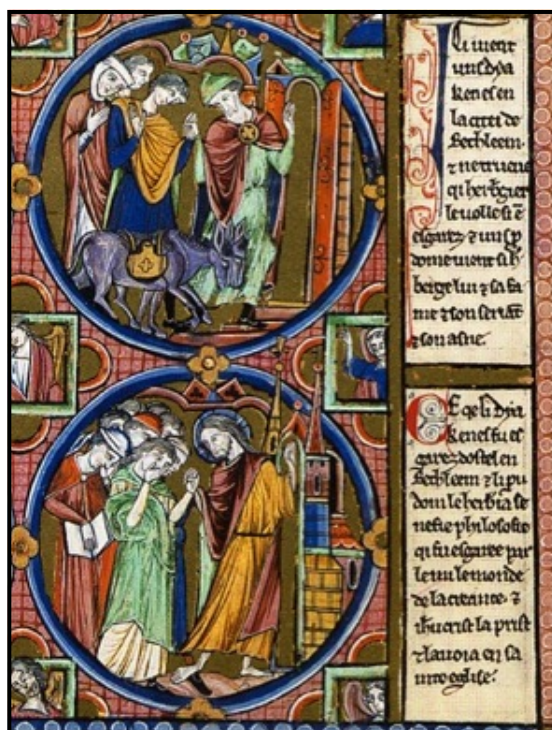 Ici uient
uns dya
kenes en
la citei de
Bethleem.
⁊ ne trueue
qi herbgier
le uolle si ē
esgarez ⁊ uns p
dome uient si h
berge lui ⁊ sa fa
me ⁊ son seriāt
⁊ son asne.
Ce qe li dya
kenes fu es
garez dostel en
Bethleem ⁊ li pu
dom le herbia se
nefie philosofie
qi fu esgaree par
le mi le monde
de la creance. ⁊
ihucrist la prist
⁊ lauoia en sa
inte eglise.